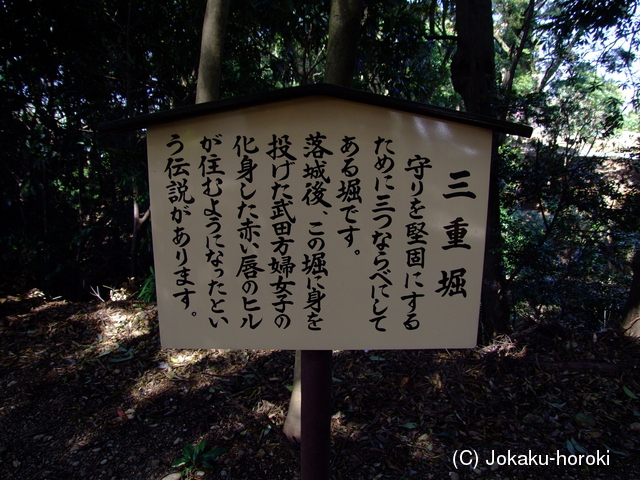 三重堀
守りを堅固にする
ために三つならべにして
ある堀です。
落城後、この堀に身を
投げた武田方婦女子の
化身した赤い唇のヒル
が住むようになったとい
う伝説があります。
(C) Jokaku-horoki